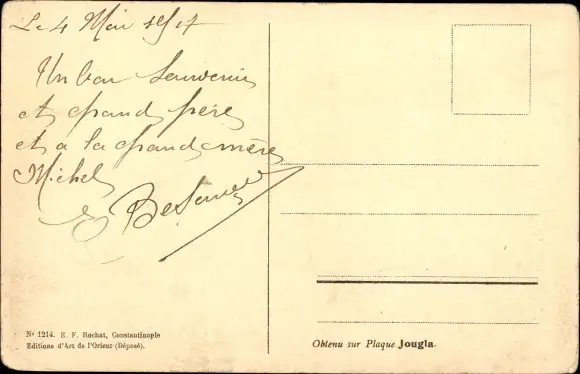 Le 4 Mai 1917
Un bon Souvenir
et grand père
et a la grand mère
Michel
E
Nº 1214. E. F. Rochat, Constantinople
Editions d'Art de l'Orient (Déposé).
Obtenu sur Plaque Jougla.